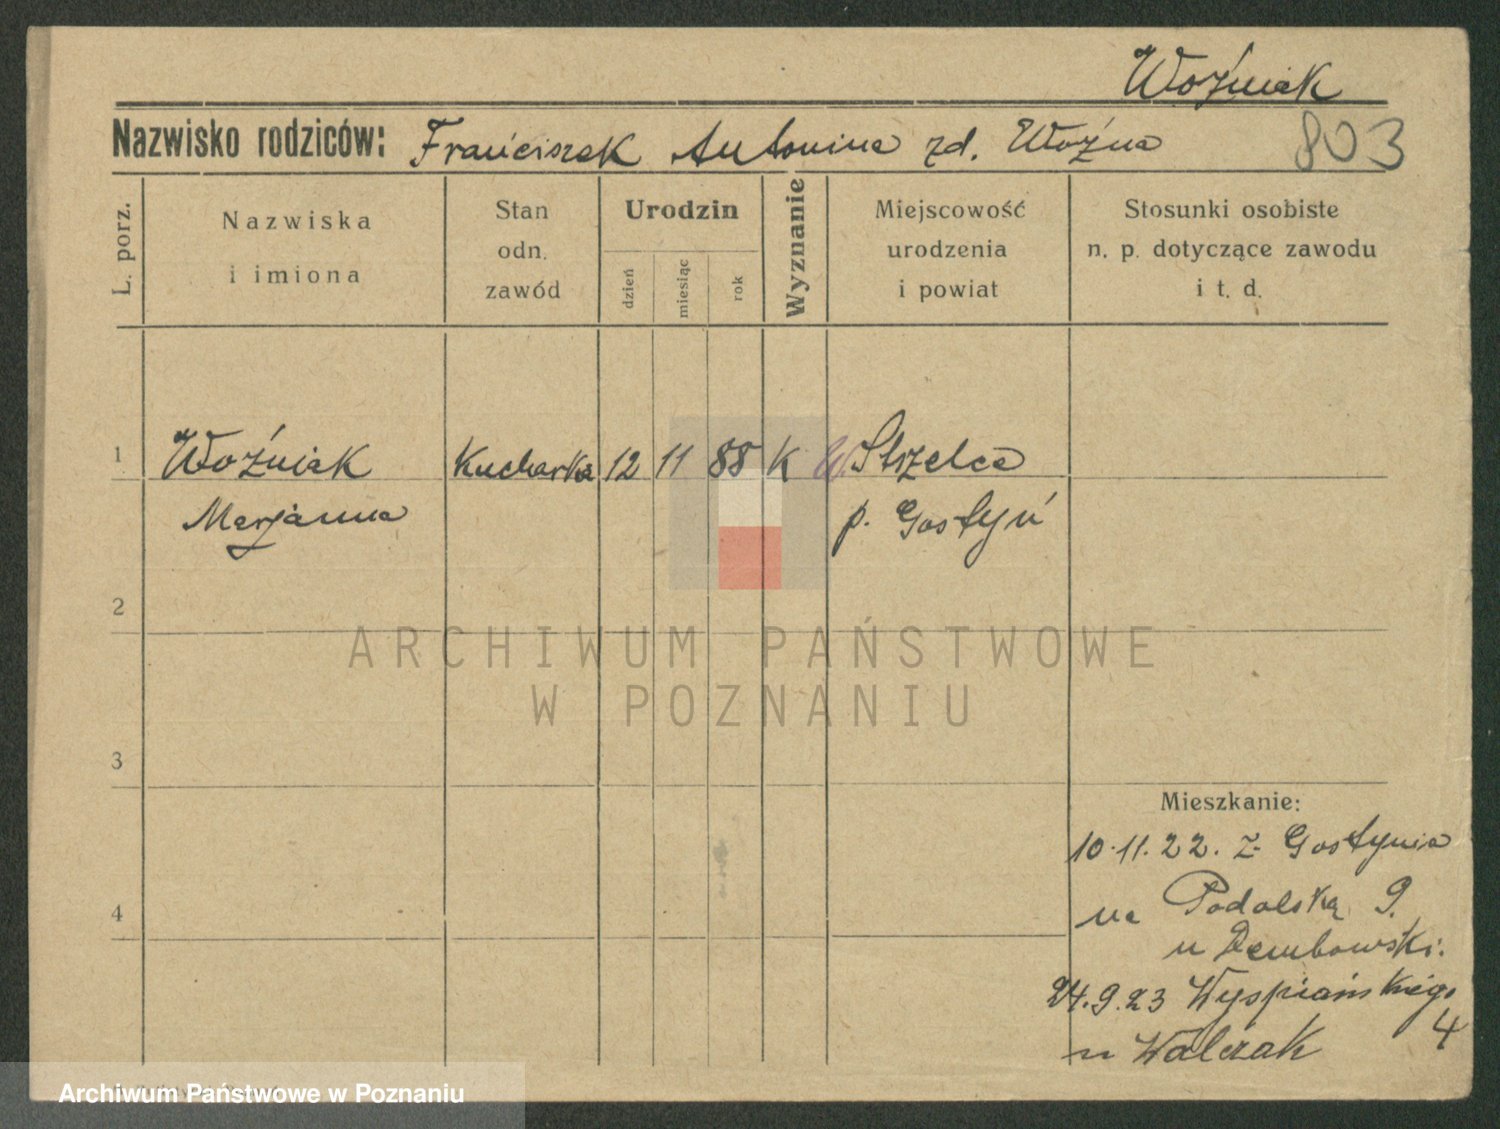 Woźniak
Nazwisko rodziców: Franciszek Antonina zd. Woźna 803
L. porz.
Nazwiska
i imiona
Stan
odn.
zawód
Urodzin
dzień
miesiąc
rok
Wyznanie
Miejscowość
urodzenia
i powiat
Stosunki osobiste
n. p. dotyczące zawodu
i t. d.
1 Woźniak Kucharka 12 11 88 K W. Strzelce
Marjanna p. Gostyń
2
ARCHIWUM PAŃSTWOWE
W POZNANIU
3
Mieszkanie:
10.11.22. z Gostynia
4 na Podolską 9.
u Dembowski.
24.9.23 Wyspiańskiego
4
u Walczak
Archiwum Państwowe w Poznaniu